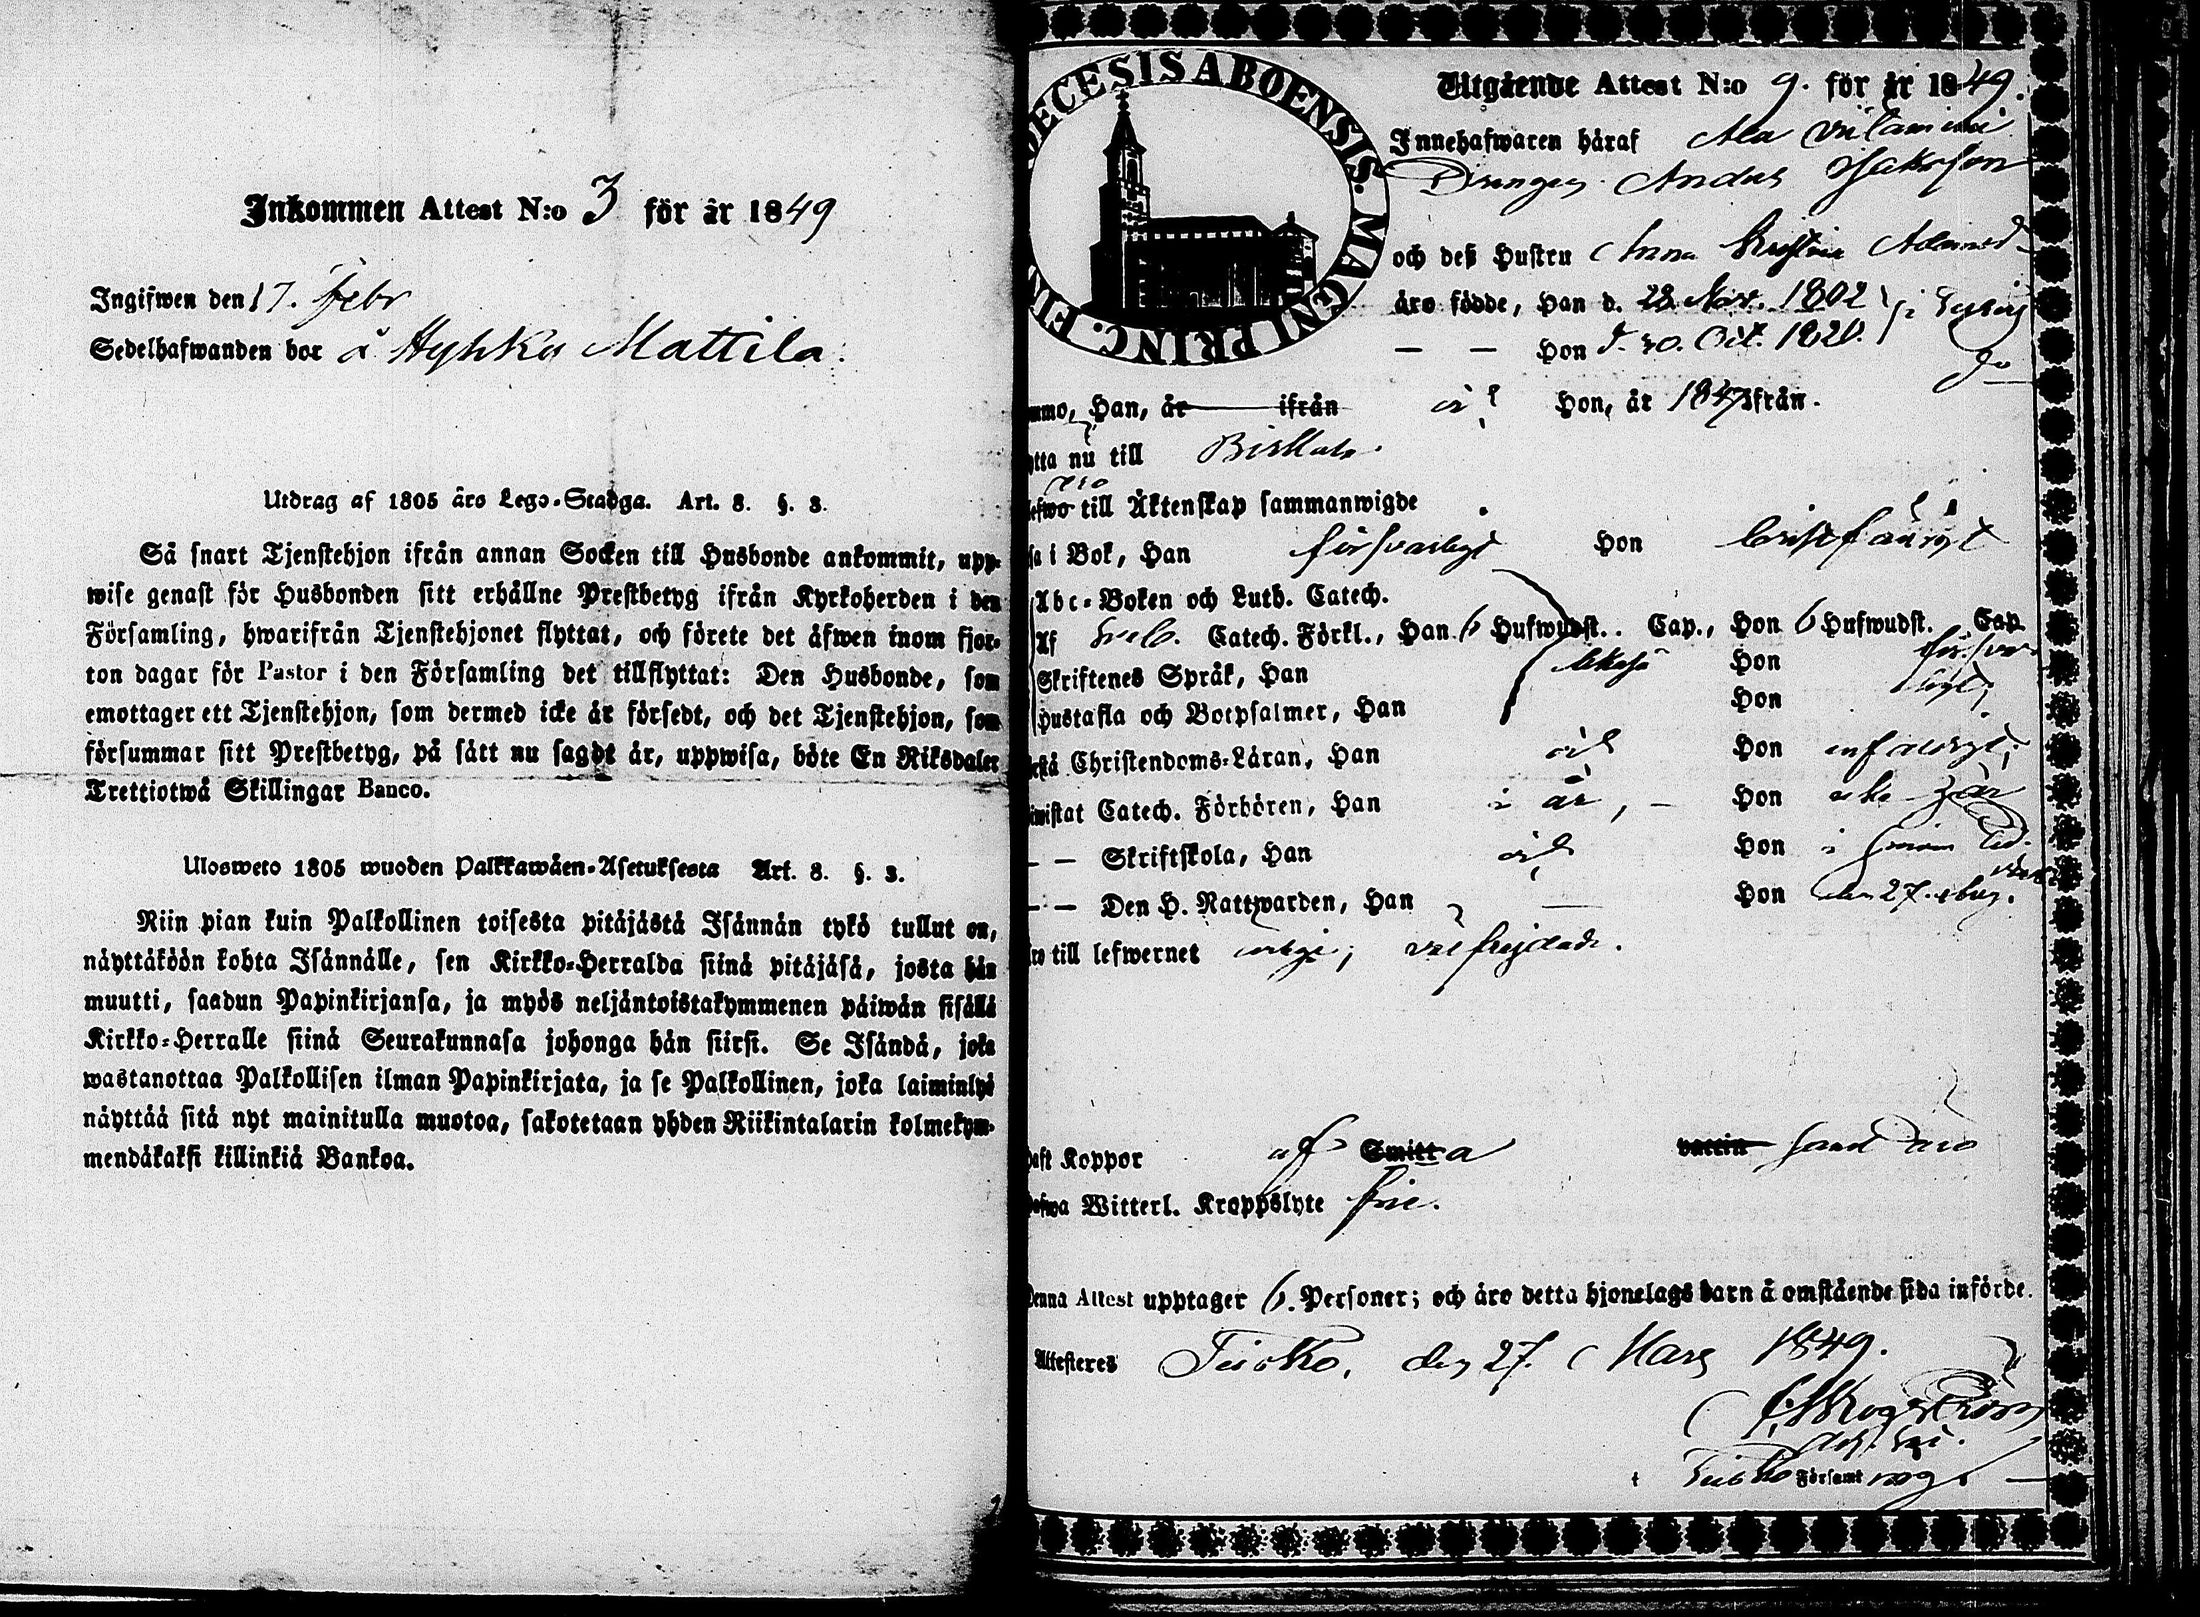 Inkommen Attest N:o 3 för år 1849
Ingifwen den 17. Febr
Sedelhafwanden bor å Hyhky Mattila.
Utdrag af 1805 års Lego-Stadga. Art. 8. §. 3.
Så snart Tjenstehjon ifrån annan Socken till Husbonde ankommit, upp-
wise genast för Husbonden sitt erhållne Prestbetyg ifrån Kyrkoherden i den
Församling, hwarifrån Tjenstehjonet flyttat, och förete det äfwen inom fjor-
ton dagar för Pastor i den Församling det tillflyttat: Den Husbonde, som
emottager ett Tjenstehjon, som dermed icke är försedt, och det Tjenstehjon, som
försummar sitt Prestbetyg, på sätt nu sagdt är, uppwisa, böte En Riksdaler
Trettiotwå Skillingar Banco.
Ulosweto 1805 wuoden Palkkawäen-Asetuksesta Art. 8. §. 3.
Niin pian kuin Palkollinen toisesta pitäjästä Isännän tykö tullut on,
näyttäköön kohta Isännälle, sen Kirkko-Herralda siinä pitäjäsä, josta hän
muutti, saadun Papinkirjansa, ja myös neljäntoistakymmenen päiwän sisällä
Kirkko-Herralle siinä Seurakunnasa johonga hän siirsi. Se Isändä, joka
wastanottaa Palkollisen ilman Papinkirjata, ja se Palkollinen, joka laiminlyö
näyttää sitä nyt mainitulla muotoa, sakotetaan yhden Riikintalarin kolmekym-
mendäkaksi killinkiä Bankoa.
DIOECESIS ABOENSIS. MAGNI PRINC. FIN
Utgående Attest N:o 9. för år 1849.
Innehafwaren häraf Ala
Drengen Anders Jakobson
och deß Hustru Anna Kristina Adamsd
äro födde, Han d. 28. Nov. 1802 i
— — Hon d. 30. Oct. 1820.
mmo, Han, är ifrån Hon, år 1847 ifrån.
ytta nu till Birkala
efwo äro till Äktenskap sammanwigde
sa i Bok, Han försvarligt Hon
Abc-Boken och Luth. Catech.
Af Sveb. Catech. Förkl., Han 6 Hufwudst. Cap., Hon 6 Hufwudst. Cap.
Skriftenes Språk, Han likaså Hon försvar-
Hustafla och Botpsalmer, Han Hon ligt,
rstå Christendoms-Läran, Han Hon
iwistat Catech. Förhören, Han i år, — Hon
— — Skriftskola, Han Hon i
— — Den H. Nattwarden, Han — Hon den 27.
ro till lefwernet välfrejdade.
haft Koppor af Smitta vaccin
hafwa Witterl. Kroppslyte frie.
Denna Attest upptager 6. Personer; och äro detta hjonelags barn å omstående sida införde.
Attesteres Teisko, den 27. Mars 1849.
Teisko Församl